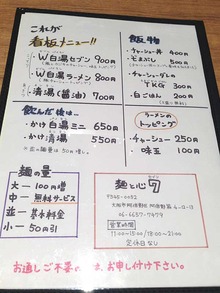 これが
看板メニュー!!
・W白湯セブン 900円
・W白湯ラーメン 800円
・清湯(醤油) 700円
飲んだ後は…
・かけ白湯ミニ 650円
・かけ清湯 550円
麺の量
大― 100円増
中― 無料サービス
並― 基本料金
小― 50円引
飯物
・チャーシュー丼 400円
・そぼろめし 500円
・チャーシューダレの
TKG 300円
・白ごはん 200円
ラーメンの
トッピング
・チャーシュー 250円
・味玉 100円
麺と心7
〒545-0052
大阪市阿倍野区阿倍野筋
06-6657-7979
営業時間
11:00~15:00/18:00~21:00
定休日なし
お通しご不要の方は、お申し付け下さい。